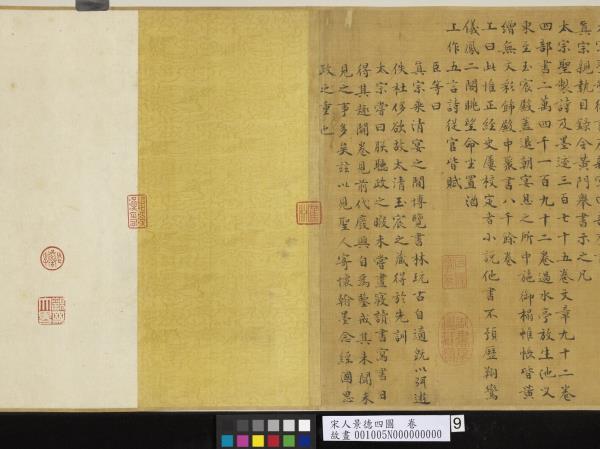 真宗親執目錄令黃門舉書示之凡
太宗聖製詩及墨迹三百七十五卷文章九十二卷
四部書二萬四千一百九十二卷過水亭放生池又
東至玉宸殿蓋退朝宴息之所中施御榻帷帳皆黃
繒無文彩飾殿中聚書八千餘卷
上曰此惟正經史屢校定者小說他書不預歷翔鸞
儀鳳二閣眺望命坐置酒
上作五言詩從官皆賦
臣等曰
真宗乘清宴之閒博覽書林玩古自適既以弭遊
佚杜侈欲故太清玉宸之藏得於先訓
太宗嘗曰朕聽政之暇未嘗晝寢讀書寫書日
得其趣開卷見前代廢興自為鑒戒其未聞未
見之事多矣茲以見聖人寄懷翰墨念經圖思
政之重也
宋人景德四圖 卷
故畫 001005N000000000
9